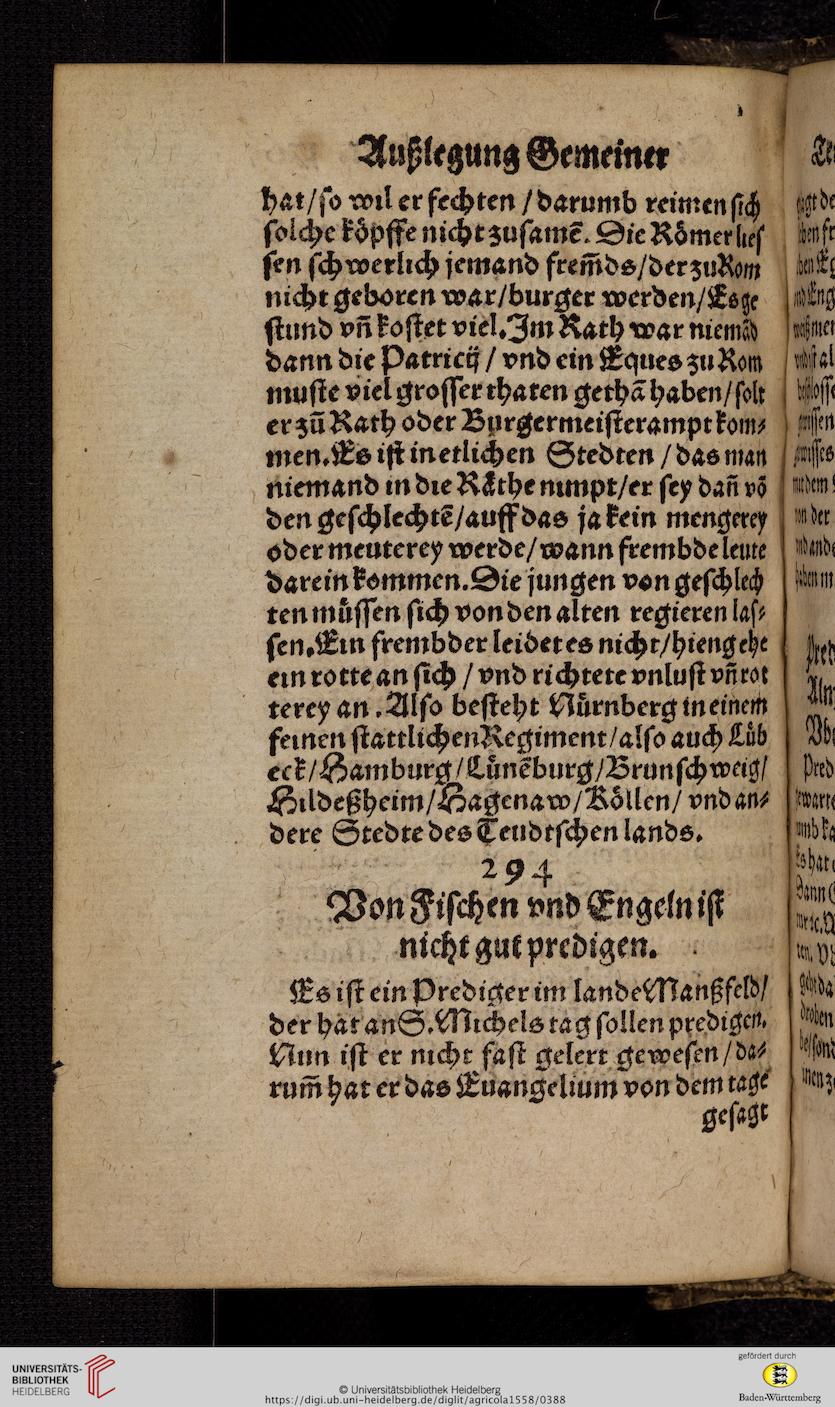 Außlegung Gemeiner
hat/so wil er fechten/darumb reimen sich
solche köpffe nicht zusamē. Die Römer lies
sen schwerlich jemand frem̃ds/der zu Rom
nicht geboren war/burger werden/Es ge
stund vñ kostet viel. Im Rath war niemãd
dann die Patricij/vnd ein Eques zu Rom
muste viel grosser thaten gethã haben/solt
er zũ Rath oder Burgermeisterampt kom⸗
men. Es ist in etlichen Stedten/das man
niemand in die Räthe nimpt/er sey dañ võ
den geschlechtē/auff das ja kein mengerey
oder meuterey werde/wann frembde leute
darein kommen. Die jungen von geschlech
ten müssen sich von den alten regieren las⸗
sen. Ein frembder leidet es nicht/hieng ehe
ein rotte an sich/vnd richtete vnlust vñ rot
terey an. Also besteht Nürnberg in einem
feinen stattlichen Regiment/also auch Lüb
eck/Hamburg/Lünēburg/Brunschweig/
Hildeßheim/Hagenaw/Köllen/vnd an⸗
dere Stedte des Teudtschen lands.
294
Von Fischen vnd Engeln ist
nicht gut predigen.
Es ist ein Prediger im lande Manßfeld/
der hat an S. Michels tag sollen predigen.
Nun ist er nicht fast gelert gewesen/da⸗
rum̃ hat er das Euangelium von dem tage
gesagt
UNIVERSITÄTS-
BIBLIOTHEK
HEIDELBERG
© Universitätsbibliothek Heidelberg
https://digi.ub.uni-heidelberg.de/diglit/agricola1558/0388
gefördert durch
Baden-Württemberg